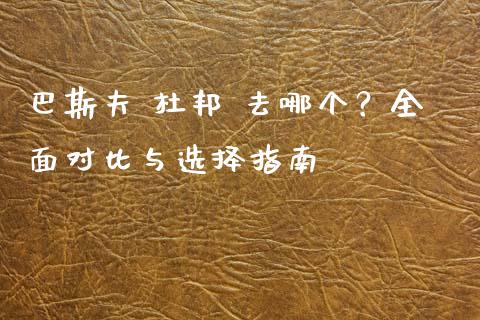 巴斯夫 杜邦 去哪个？全
面对比与选择指南